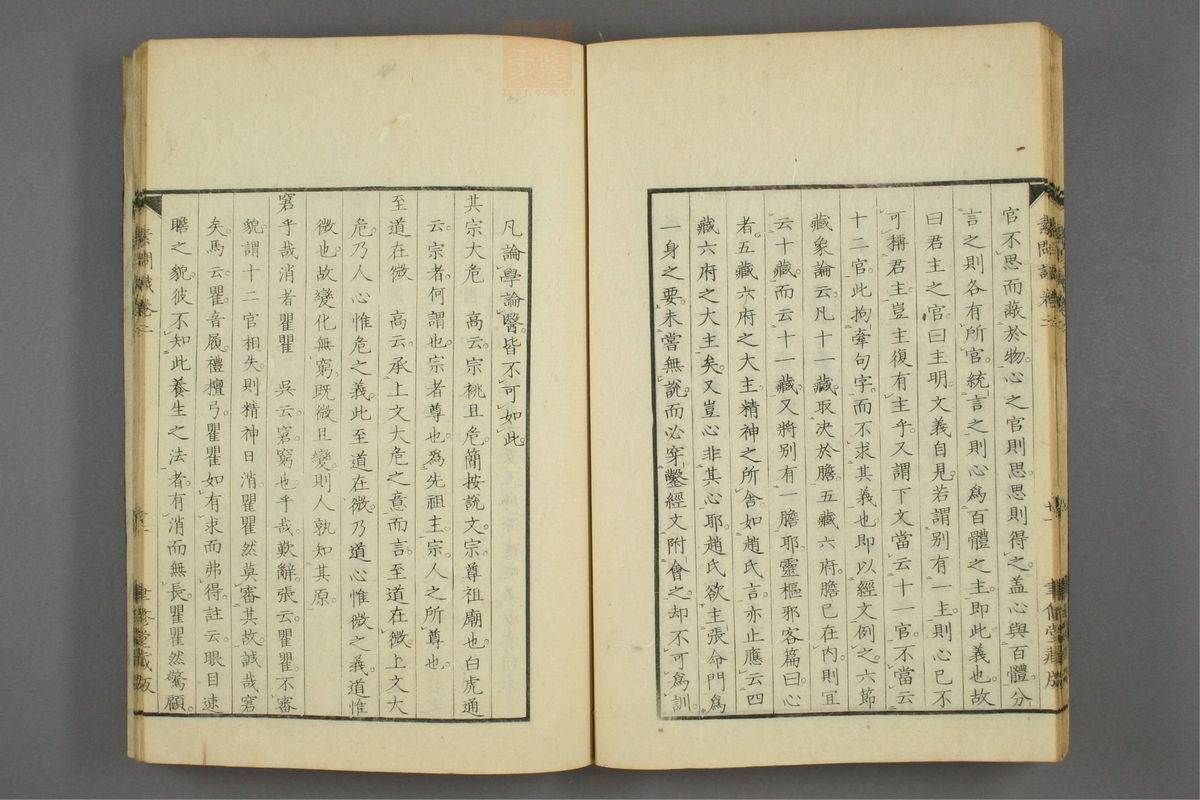 官不思而蔽於物。心之官則思。思則得之。盖心與百體分
言之。則各有所官。統言之。則心為百體之主。即此義也。故
曰君主之官。曰主明。文義自見。若謂別有一主。則心已不
可稱君主。豈主復有主乎。又謂下文當云十一官。不當云
十二官。此拘牽句字。而不求其義也。即以經文例之。六節
藏象論云。凡十一藏取決於膽。五藏六府。膽已在內。則宜
云十藏。而云十一藏。又將別有一膽耶。靈樞邪客篇曰。心
者。五藏六府之大主。精神之所舍。如趙氏言。亦止應云四
藏六府之大主矣。又豈心非其心耶。趙氏欲主張命門為
一身之要。未嘗無說。而必穿鑿經文附會之。却不可為訓。
凡論學論醫。皆不可如此。
其宗大危 高云。宗祧且危。簡按說文。宗尊祖廟也。白虎通
云。宗者。何謂也。宗者尊也。為先祖主。宗人之所尊也。
至道在微 高云。承上文大危之意而言。至道在微。上文大
危。乃人心惟危之義。此至道在微。乃道心惟微之義。道惟
微也。故變化無窮。既微且變。則人孰知其原。
窘乎哉消者瞿瞿 吳云。窘。窮也。乎哉。歎辭。張云。瞿瞿。不審
貌。謂十二官相失。則精神日消。瞿瞿然莫審其故。誠哉窘
矣。馬云。瞿音屨。禮檀弓。瞿瞿如有求而弗得。註云。眼目速
瞻之貌。彼不知此養生之法者。有消而無長。瞿瞿然驚顧。
素問識卷之二
聿修堂藏版